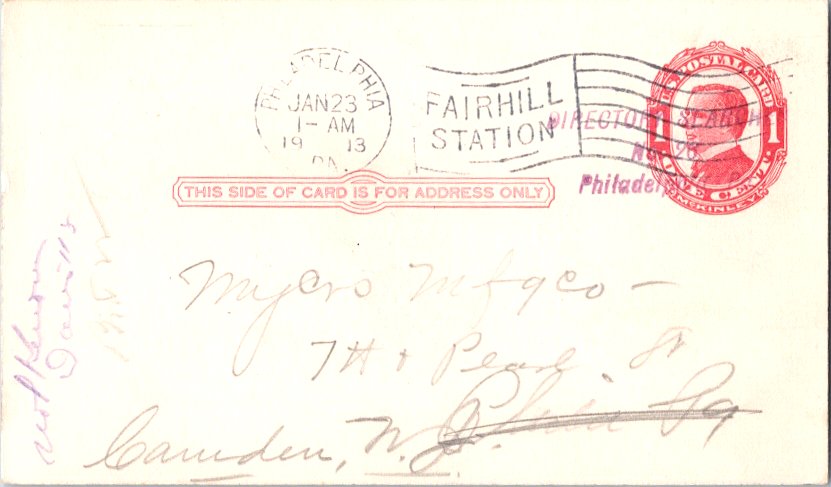 PHILADELPHIA
JAN 23
1- AM
19 13
PA.
FAIRHILL
STATION
U.S. POSTAL CARD
1 1
ONE CENT
McKINLEY
DIRECTORY SEARCH
No 26
Philadelp
THIS SIDE OF CARD IS FOR ADDRESS ONLY
Myers Mfg Co -
7th & Pearl St
Phila Pa
Camden, N.J.
Not Known